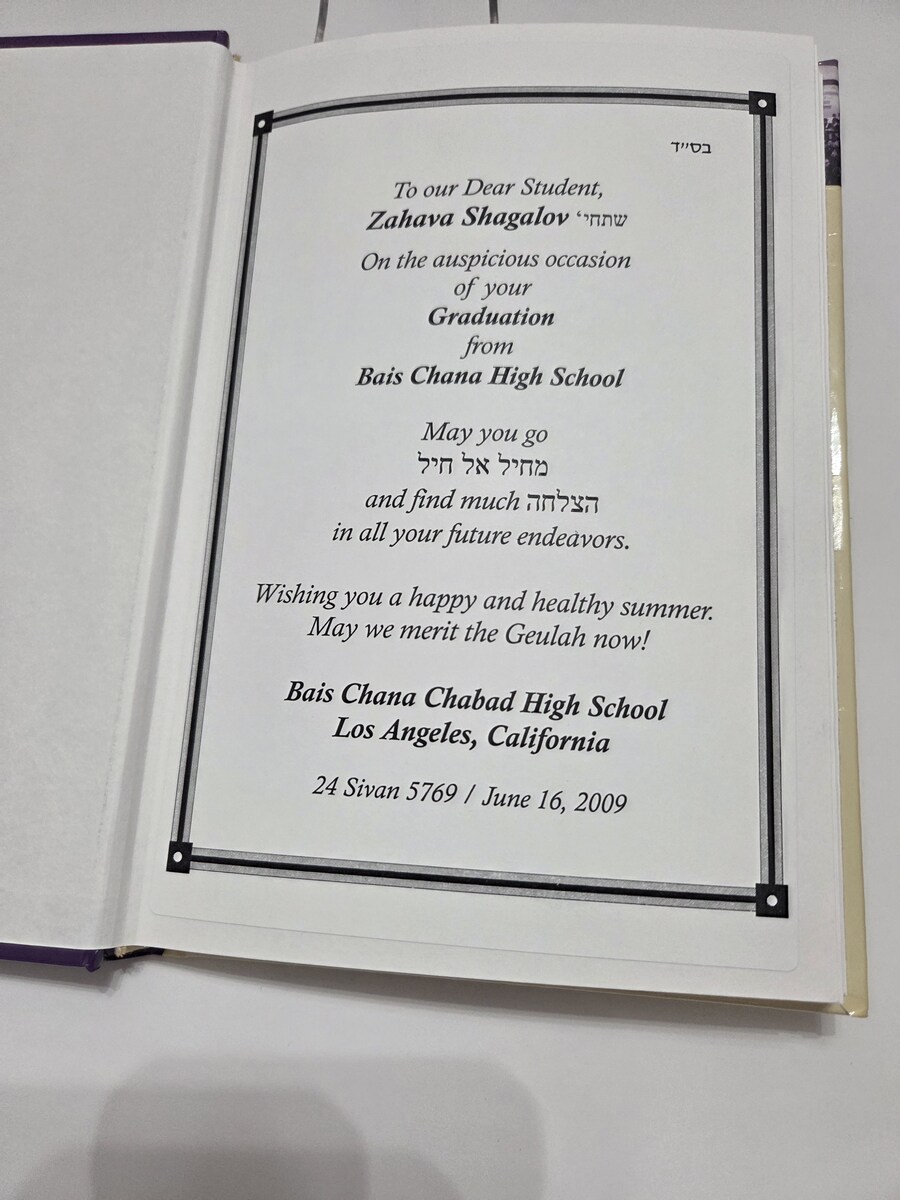 בס״ד
To our Dear Student,
Zahava Shagalov שתחי׳
On the auspicious occasion
of your
Graduation
from
Bais Chana High School
May you go
מחיל אל חיל
and find much הצלחה
in all your future endeavors.
Wishing you a happy and healthy summer.
May we merit the Geulah now!
Bais Chana Chabad High School
Los Angeles, California
24 Sivan 5769 / June 16, 2009